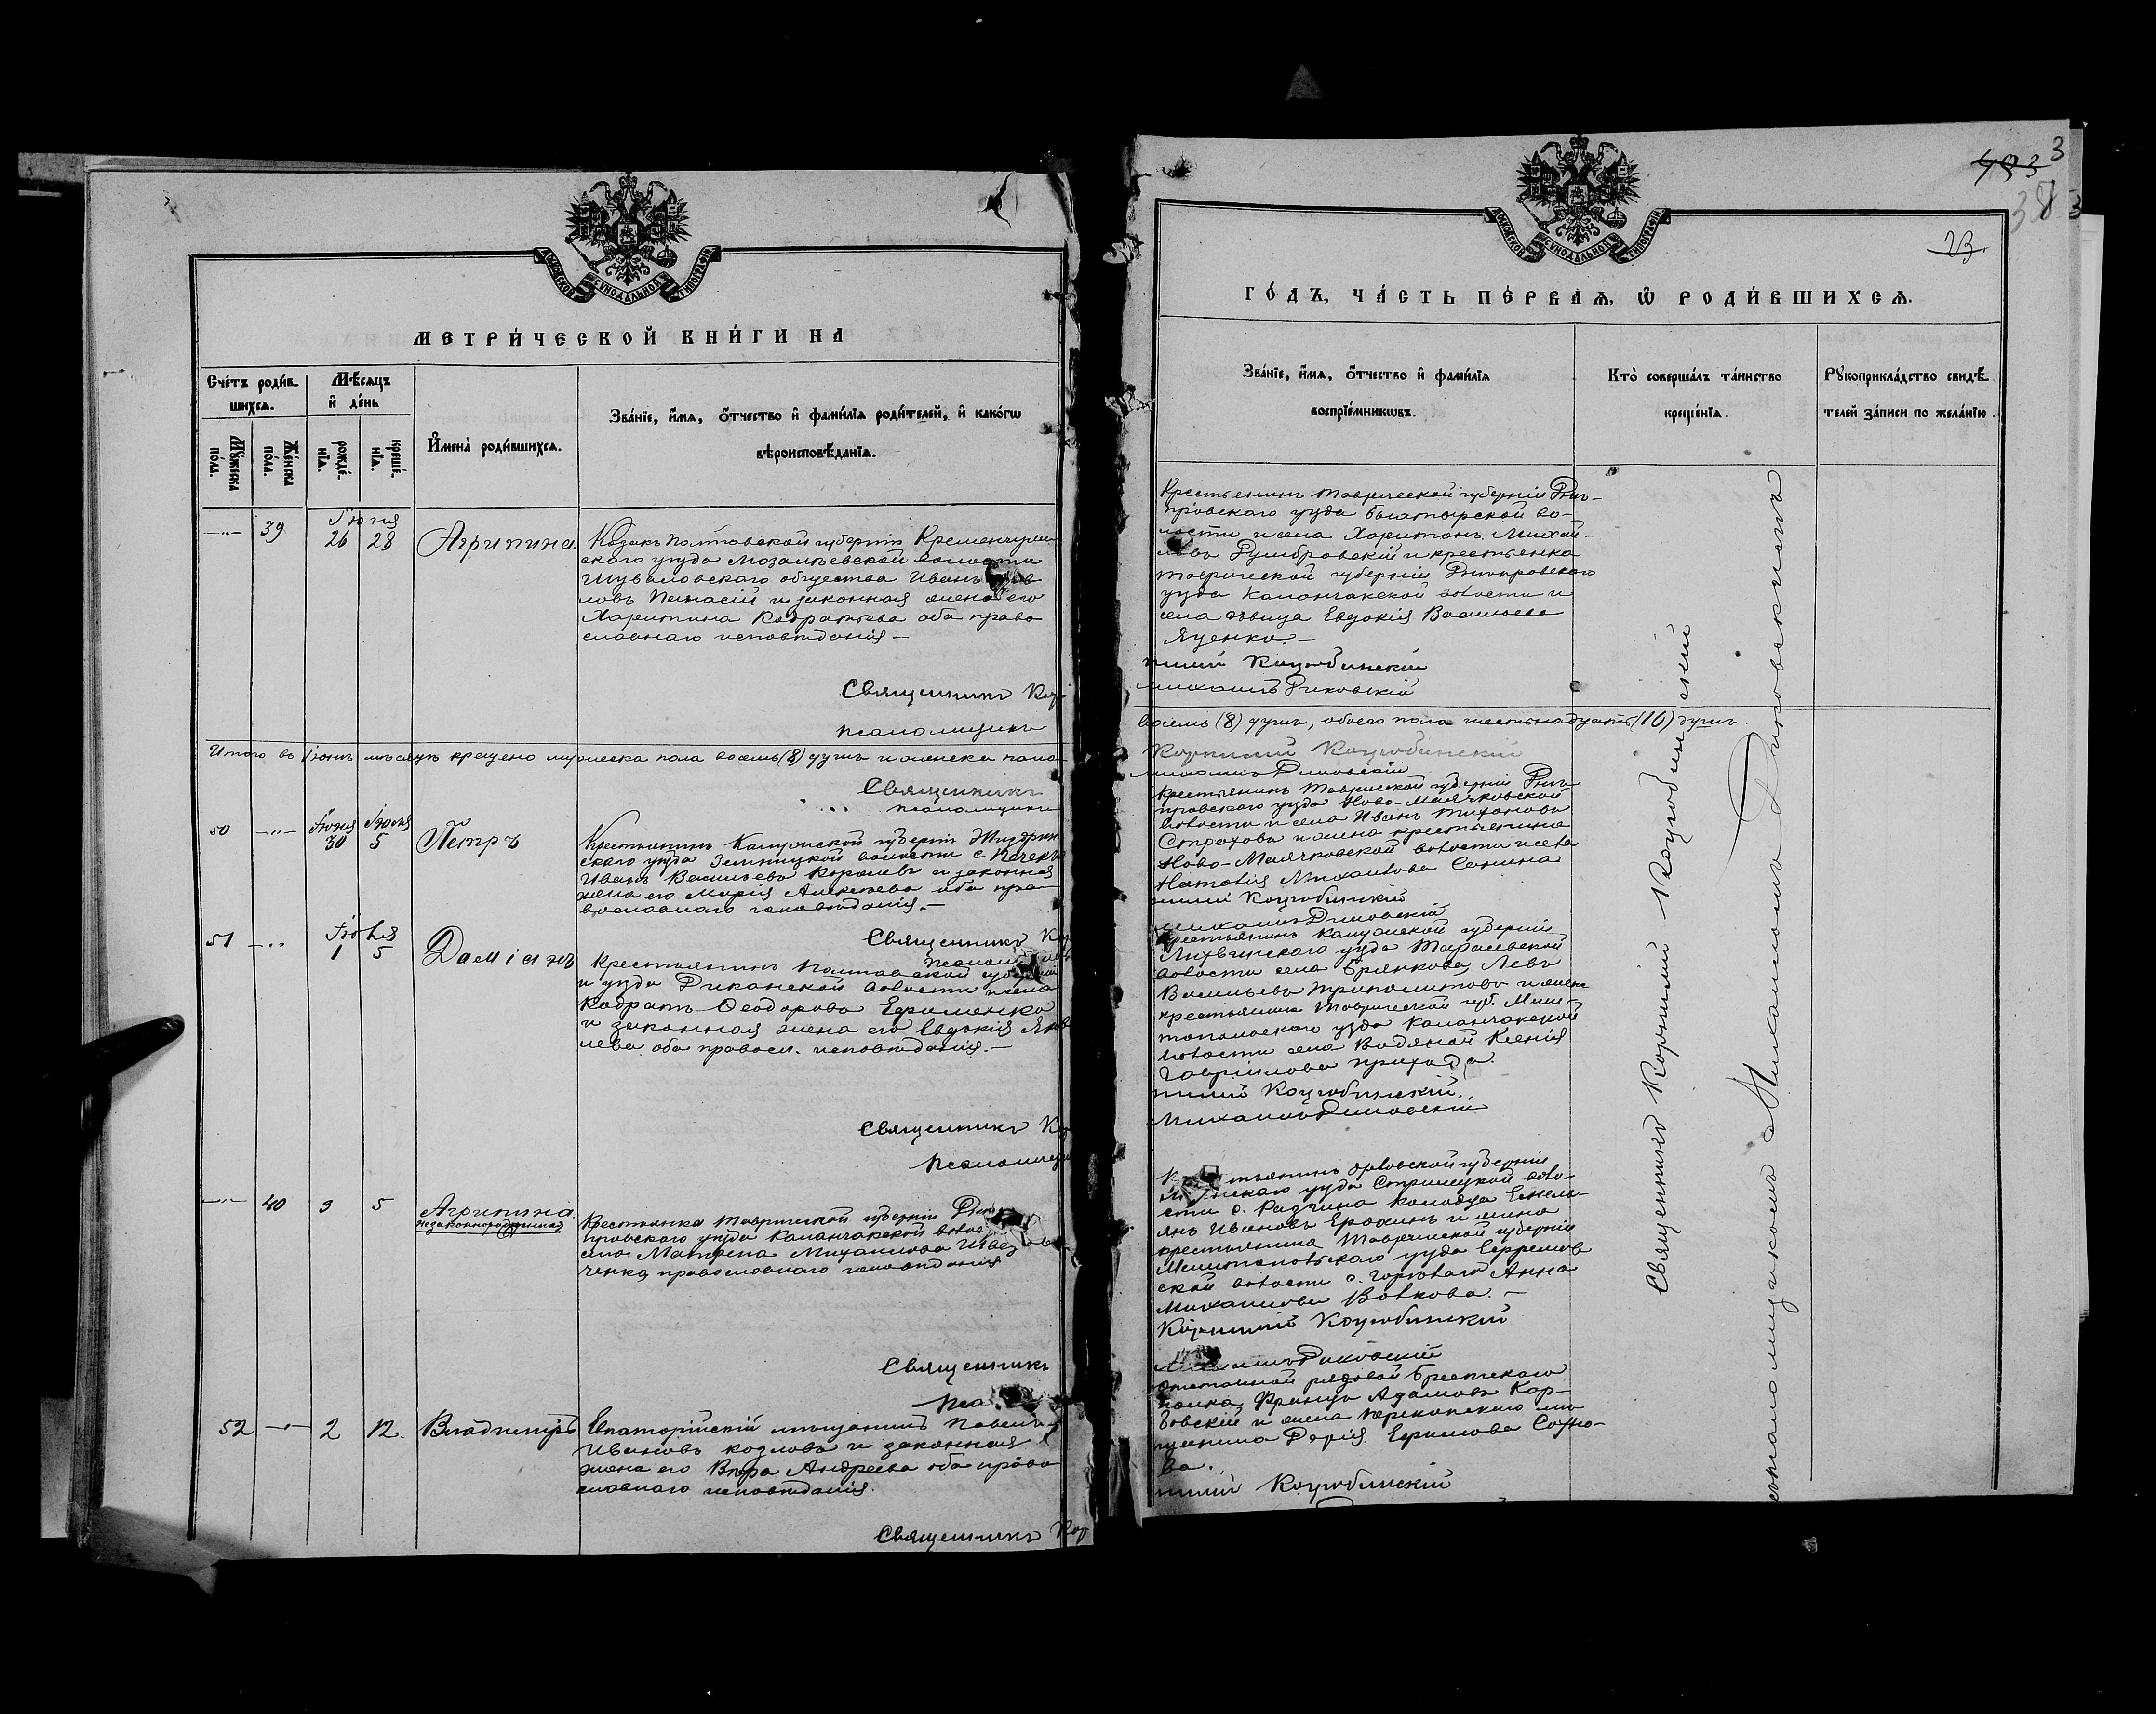 МОСКОВСКОЙ СѴНОДАЛЬНОЙ ТИПОГРАФІИ
МЕТРИ́ЧЕСКОЙ КНИ́ГИ НА
Сче́тъ роди́в-
шихсѧ.
Мѣ́сѧцъ
и҆ де́нь
Мꙋ́жеска
по́ла.
Же́нска
по́ла.
рожде́-
нїѧ.
креще́-
нїѧ.
И҆мена̀ роди́вшихсѧ.
Зва́нїе, и҆́мѧ, ѻ҆́тчество и҆ фами́лїѧ роди́телей, и҆ како́гѡ
вѣроисповѣ́данїѧ.
39
Іюня
26 28
Агрипина.
Козакъ Полтавской губерніи Кременчуг
скаго уѣзда Мозалѣевской волости
Шуваловскаго общества Иванъ
ловъ Панасій и законная жена его
Харитина Кодратьева оба право
славнаго исповѣданія –
Священникъ
Псаломщикъ
Итого въ Іюнѣ мѣсяцѣ крещено мужеска пола восемь (8) душъ и женска пола
Священникъ
псаломщикъ
50
Іюня Іюля
30 5
Петръ
Крестьянинъ Калужской губерніи Жиздрин
скаго уѣзда волости с.
Иванъ Васильевъ Королевъ и законная
жена его Марія Алексѣева оба пра-
вославнаго исповѣданія. –
Священникъ
51
Іюля
1 5
Даміанъ
Крестьянинъ Полтавской губерніи
и уѣзда Диканской волости и села
Кодратъ Ѳеодоровъ Ефименко
и законная жена его Евдокія Яков
лева оба правосл. исповѣданія. –
Священникъ
Псаломщикъ
40 3 5
Агрипина.
незаконнорожденная
Крестьянка Таврической губерніи Днѣ
провскаго уѣзда Каланчакской волос
села Матрена Михаилова
ченко, православнаго исповѣданія
Священникъ
52 2 12.
Владиміръ
Евпаторійскій мѣщанинъ Павелъ
Ивановъ Козловъ и законная
жена его Вѣра Андреева оба право
славнаго исповѣданія.
Священникъ Кор
3
403
38
23.
МОСКОВСКОЙ СѴНОДАЛЬНОЙ ТИПОГРАФІИ
ГО́ДЪ, ЧА́СТЬ ПЕ́РВАѦ, Ѡ҆ РОДИ́ВШИХСѦ.
Зва́нїе, и҆́мѧ, ѻ҆́тчество и҆ фами́лїѧ
воспрїе́мникѡвъ.
Кто̀ соверша́лъ та́инство
креще́нїѧ.
Рꙋкоприкла́дство свидѣ́-
телей за́писи по жела́нїю.
Крестьянинъ Таврической губерніи Днѣ-
провскаго уѣзда Богатырской во-
лости и села Харитонъ Михай-
ловъ и крестьянка
Таврической губерніи Днѣпровскаго
уѣзда Каланчакской волости и
села дѣвица Евдокія Васильева
Яценко. –
Коцюбинскій
Михаилъ Диковскій
восемь (8) душъ, обоего пола шестьнадцать (16) душъ.
Корнилій Коцюбинскій
Михаилъ Диковскій
Крестьянинъ Таврической губерніи Днѣ-
провскаго уѣзда Ново-Маячковской
волости и села Иванъ Тихоновъ
Строховъ и жена крестьянина
Ново-Маячковской волости и села
Наталія Михайлова Сенина
нилій Коцюбинскій
Михаилъ Диковскій
Крестьянинъ Калужской губерніи
Лихвинскаго уѣзда волости
села Левъ
Васильевъ и жена
крестьянина Таврической губ. Мели-
топольскаго уѣзда Каланчакской
волости села Водяной Ксенія
Гавріилова
нилій Коцюбинскій.
Михаилъ Диковскій
Крестьянинъ Орловской губерніи
уѣзда Стрилецкой воло-
сти с. Колодца Емель-
янъ Ивановъ Ерохинъ и жена
крестьянина Таврической губерніи
Мелитопольскаго уѣзда Ефремов
ской волости с. Анна
Михаилова Волкова. –
Корнилій Коцюбинскій
Михаилъ Диковскій
отставной рядовой Брестскаго
полка Францъ Адамовъ Кар-
и жена Перекопскаго мѣ-
щанина Дарія Ефимова
ва.
нилій Коцюбинскій
Священникъ Корнилій Коцюбинскій
съ псаломщикомъ Михаиломъ Диковскимъ